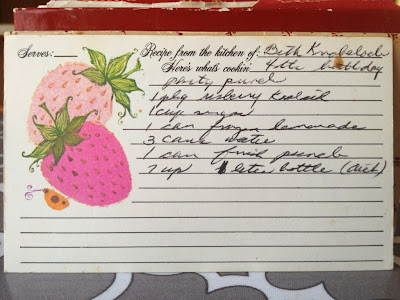 Serves:
Recipe from the kitchen of: Beth
Here's what's cookin' 4th birthday
party punch
1 pkg rasberry Koolaid
1 cup sugar
1 can frozen lemonade
3 cans water
1 can fruit punch
7 up 1 liter bottle